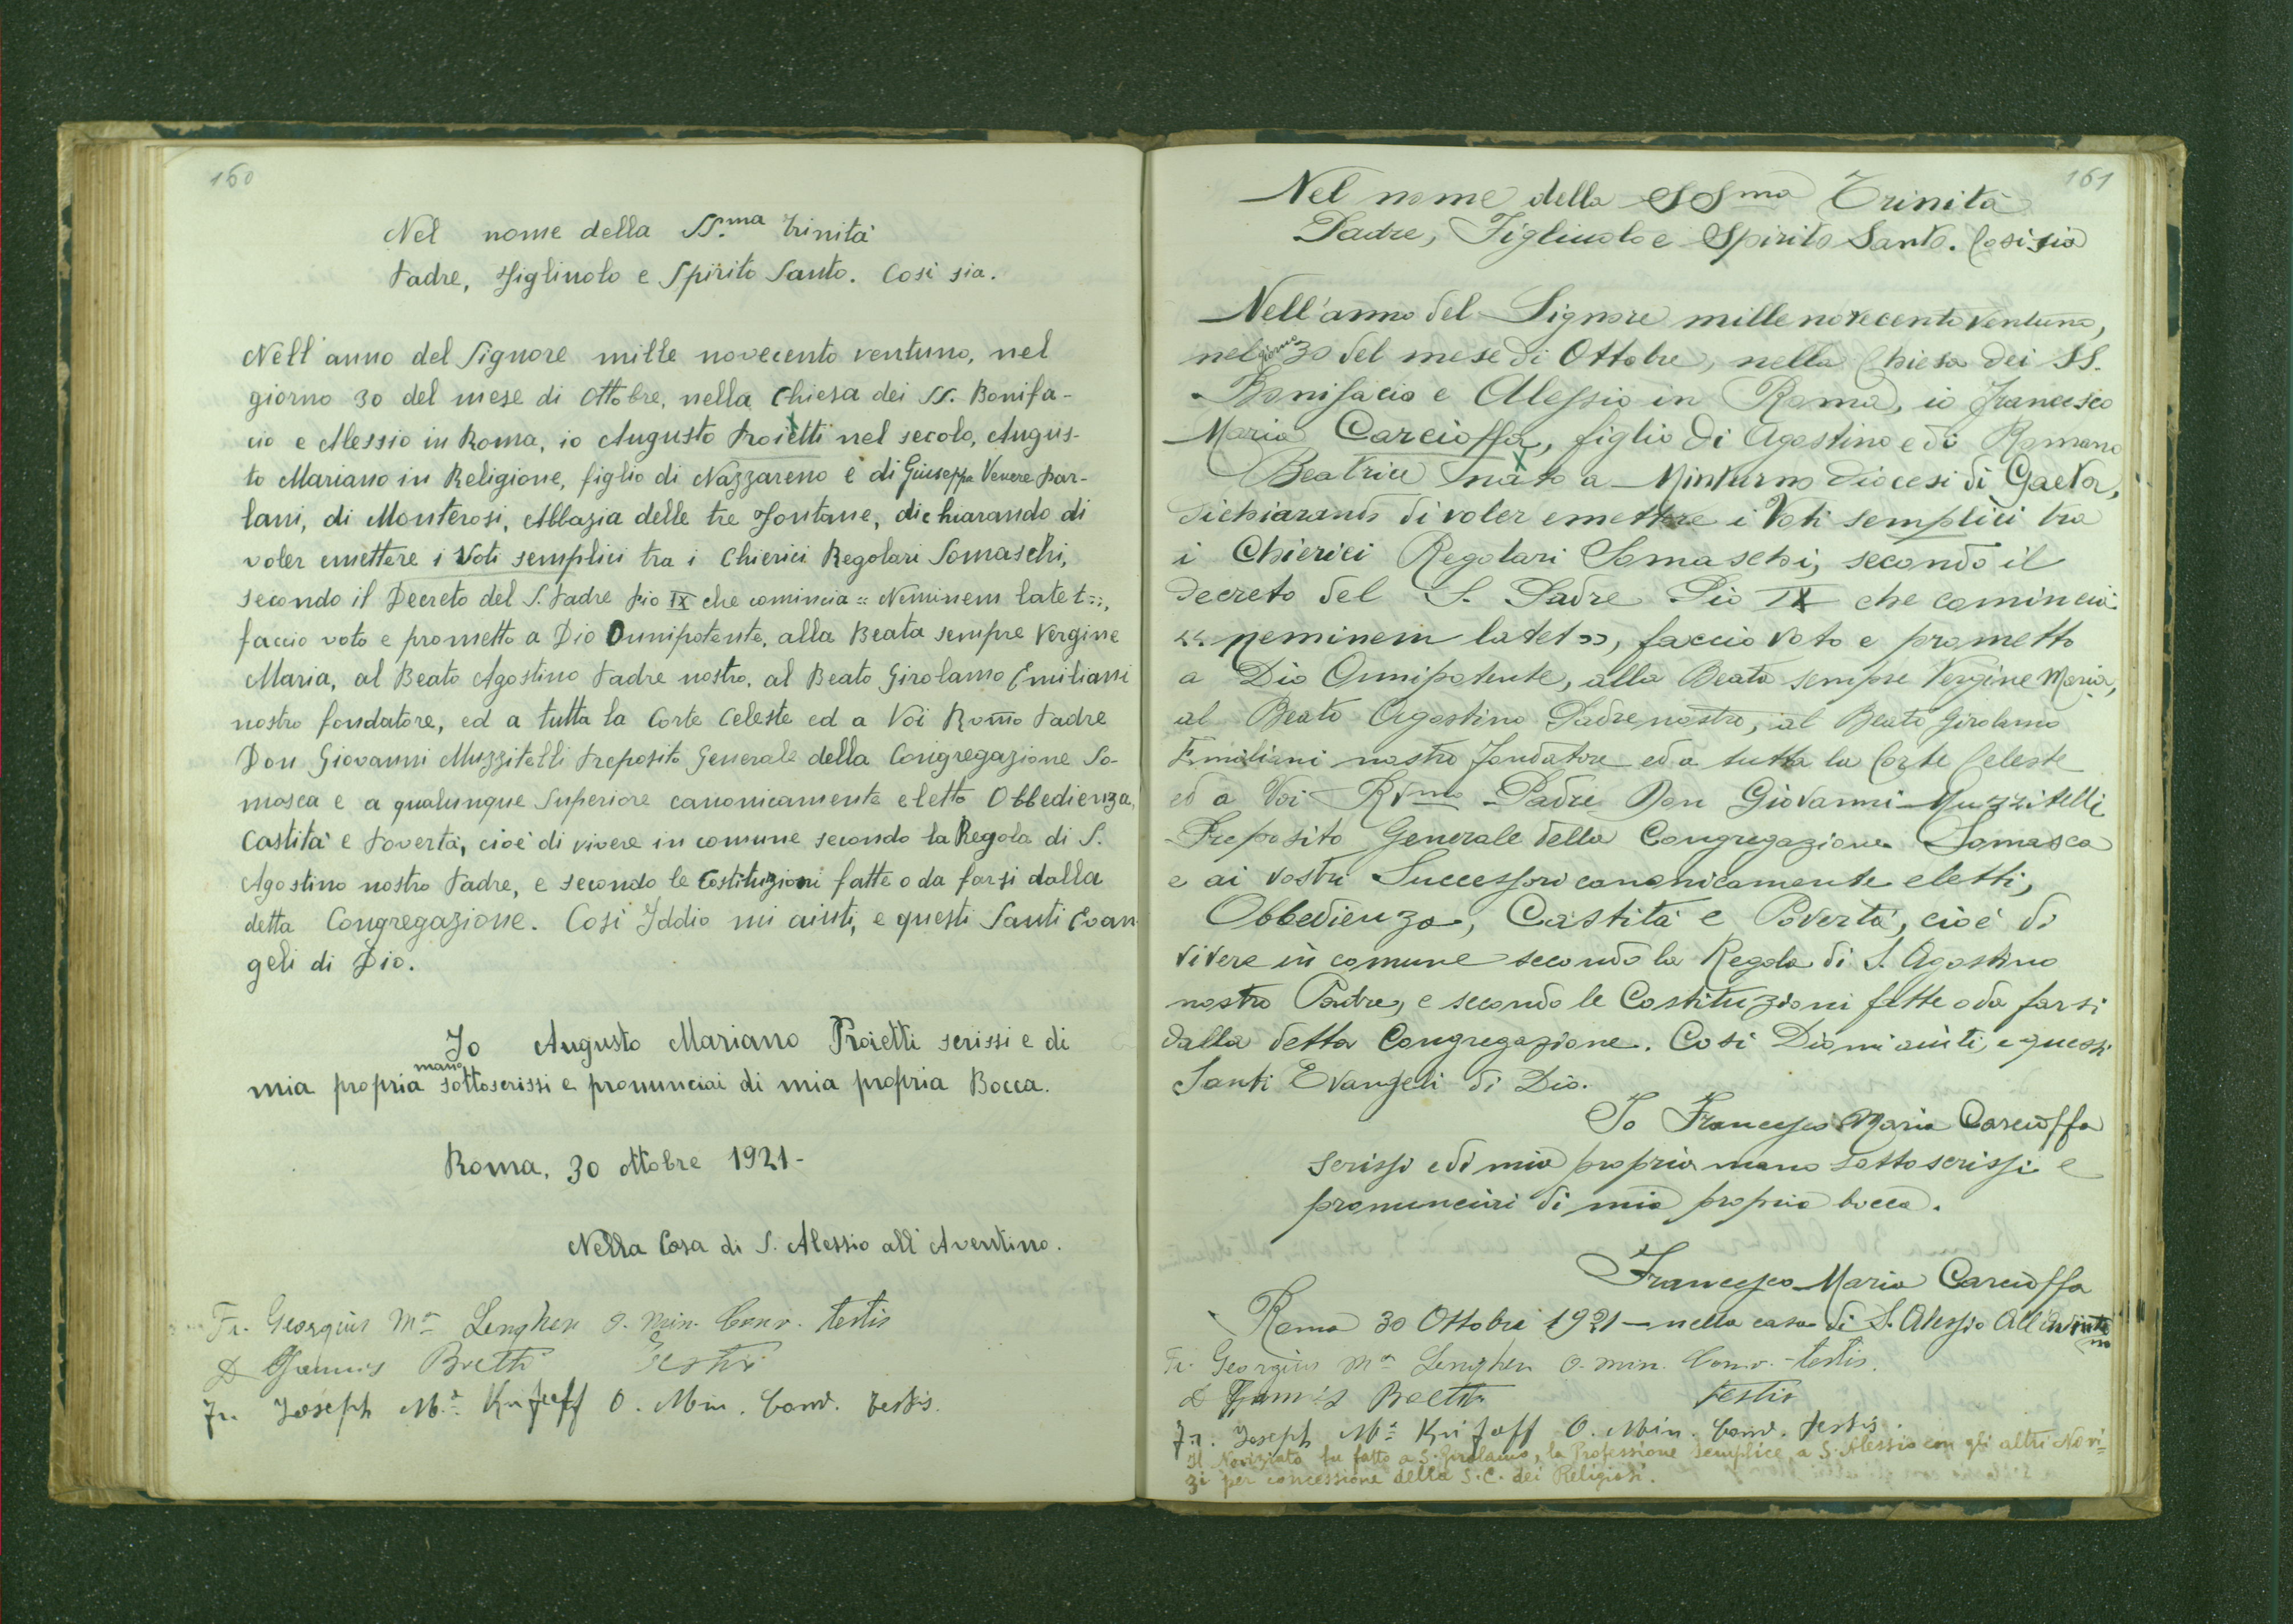 160
Nel nome della SS.ma Trinità
Padre, Figliuolo e Spirito Santo. Così sia.
Nell'anno del Signore mille novecento ventuno, nel
giorno 30 del mese di Ottobre, nella Chiesa dei SS. Bonifa-
cio e Alessio in Roma, io Augusto Proietti nel secolo, Augus-
to Mariano in Religione, figlio di Nazzareno e di Giuseppa Venere Par-
lani, di Monterosi, Abbazia delle tre Fontane, dichiarando di
voler emettere i Voti semplici tra i Chierici Regolari Somaschi,
secondo il Decreto del S. Padre Pio IX che comincia " Neminem latet ",
faccio voto e prometto a Dio Onnipotente, alla Beata sempre Vergine
Maria, al Beato Agostino Padre nostro, al Beato Girolamo Emiliani
nostro fondatore, ed a tutta la Corte Celeste ed a Voi Rv̄mo Padre
Don Giovanni Muzzitelli Preposito Generale della Congregazione So-
masca e a qualunque Superiore canonicamente eletto Obbedienza,
Castità e Povertà, cioè di vivere in comune secondo la Regola di S.
Agostino nostro Padre, e secondo le Costituzioni fatte o da farsi dalla
detta Congregazione. Così Iddio mi aiuti, e questi Santi Evan
geli di Dio.
Io Augusto Mariano Proietti scrissi e di
mia propria mano sottoscrissi e pronunciai di mia propria Bocca.
Roma, 30 ottobre 1921-
Nella Casa di S. Alessio all'Aventino.
Fr. Georgius Ma Lenghen O. Min. Conv. testis
D Testis
Fr. Joseph Ma O. Min. Conv. testis.
161
Nel nome della SSma Trinità
Padre, Figliuolo e Spirito Santo. Così sia
Nell'anno del Signore mille novecento ventuno,
nel giorno 30 del mese di Ottobre, nella Chiesa dei SS.
Bonifacio e Alessio in Roma, io Francesco
Maria Carcioffa, figlio di Agostino e di Romano
Beatrice nato a Minturno Diocesi di Gaeta,
dichiarando di voler emettere i Voti semplici tra
i Chierici Regolari Somaschi, secondo il
decreto del S. Padre Pio IX che comincia
« neminem latet », faccio voto e prometto
a Dio Onnipotente, alla Beata sempre Vergine Maria,
al Beato Agostino Padre nostro, al Beato Girolamo
Emiliani nostro fondatore ed a tutta la Corte Celeste
ed a Voi Rvmo Padre Don Giovanni Muzzitelli
Preposito Generale della Congregazione Somasca
e ai vostri Successori canonicamente eletti,
Obbedienza, Castità e Povertà, cioè di
vivere in comune secondo la Regola di S. Agostino
nostro Padre, e secondo le Costituzioni fatte o da farsi
dalla detta Congregazione. Così Dio mi aiuti, e questi
Santi Evangeli di Dio.
Io Francesco Maria Carcioffa
scrissi e di mia propria mano sottoscrissi e
pronunciai di mia propria bocca.
Francesco Maria Carcioffa
Roma 30 Ottobre 1921 — nella casa di S. Alessio All'Aventino
Fr. Georgius Ma Lenghen O. Min. Conv. - testis.
D testis
Fr. Joseph Ma O. Min. Conv. testis.
Il Noviziato fu fatto a S. Girolamo, la Professione semplice, a S. Alessio con gli altri Novi=
zi per concessione della S.C. dei Religiosi.